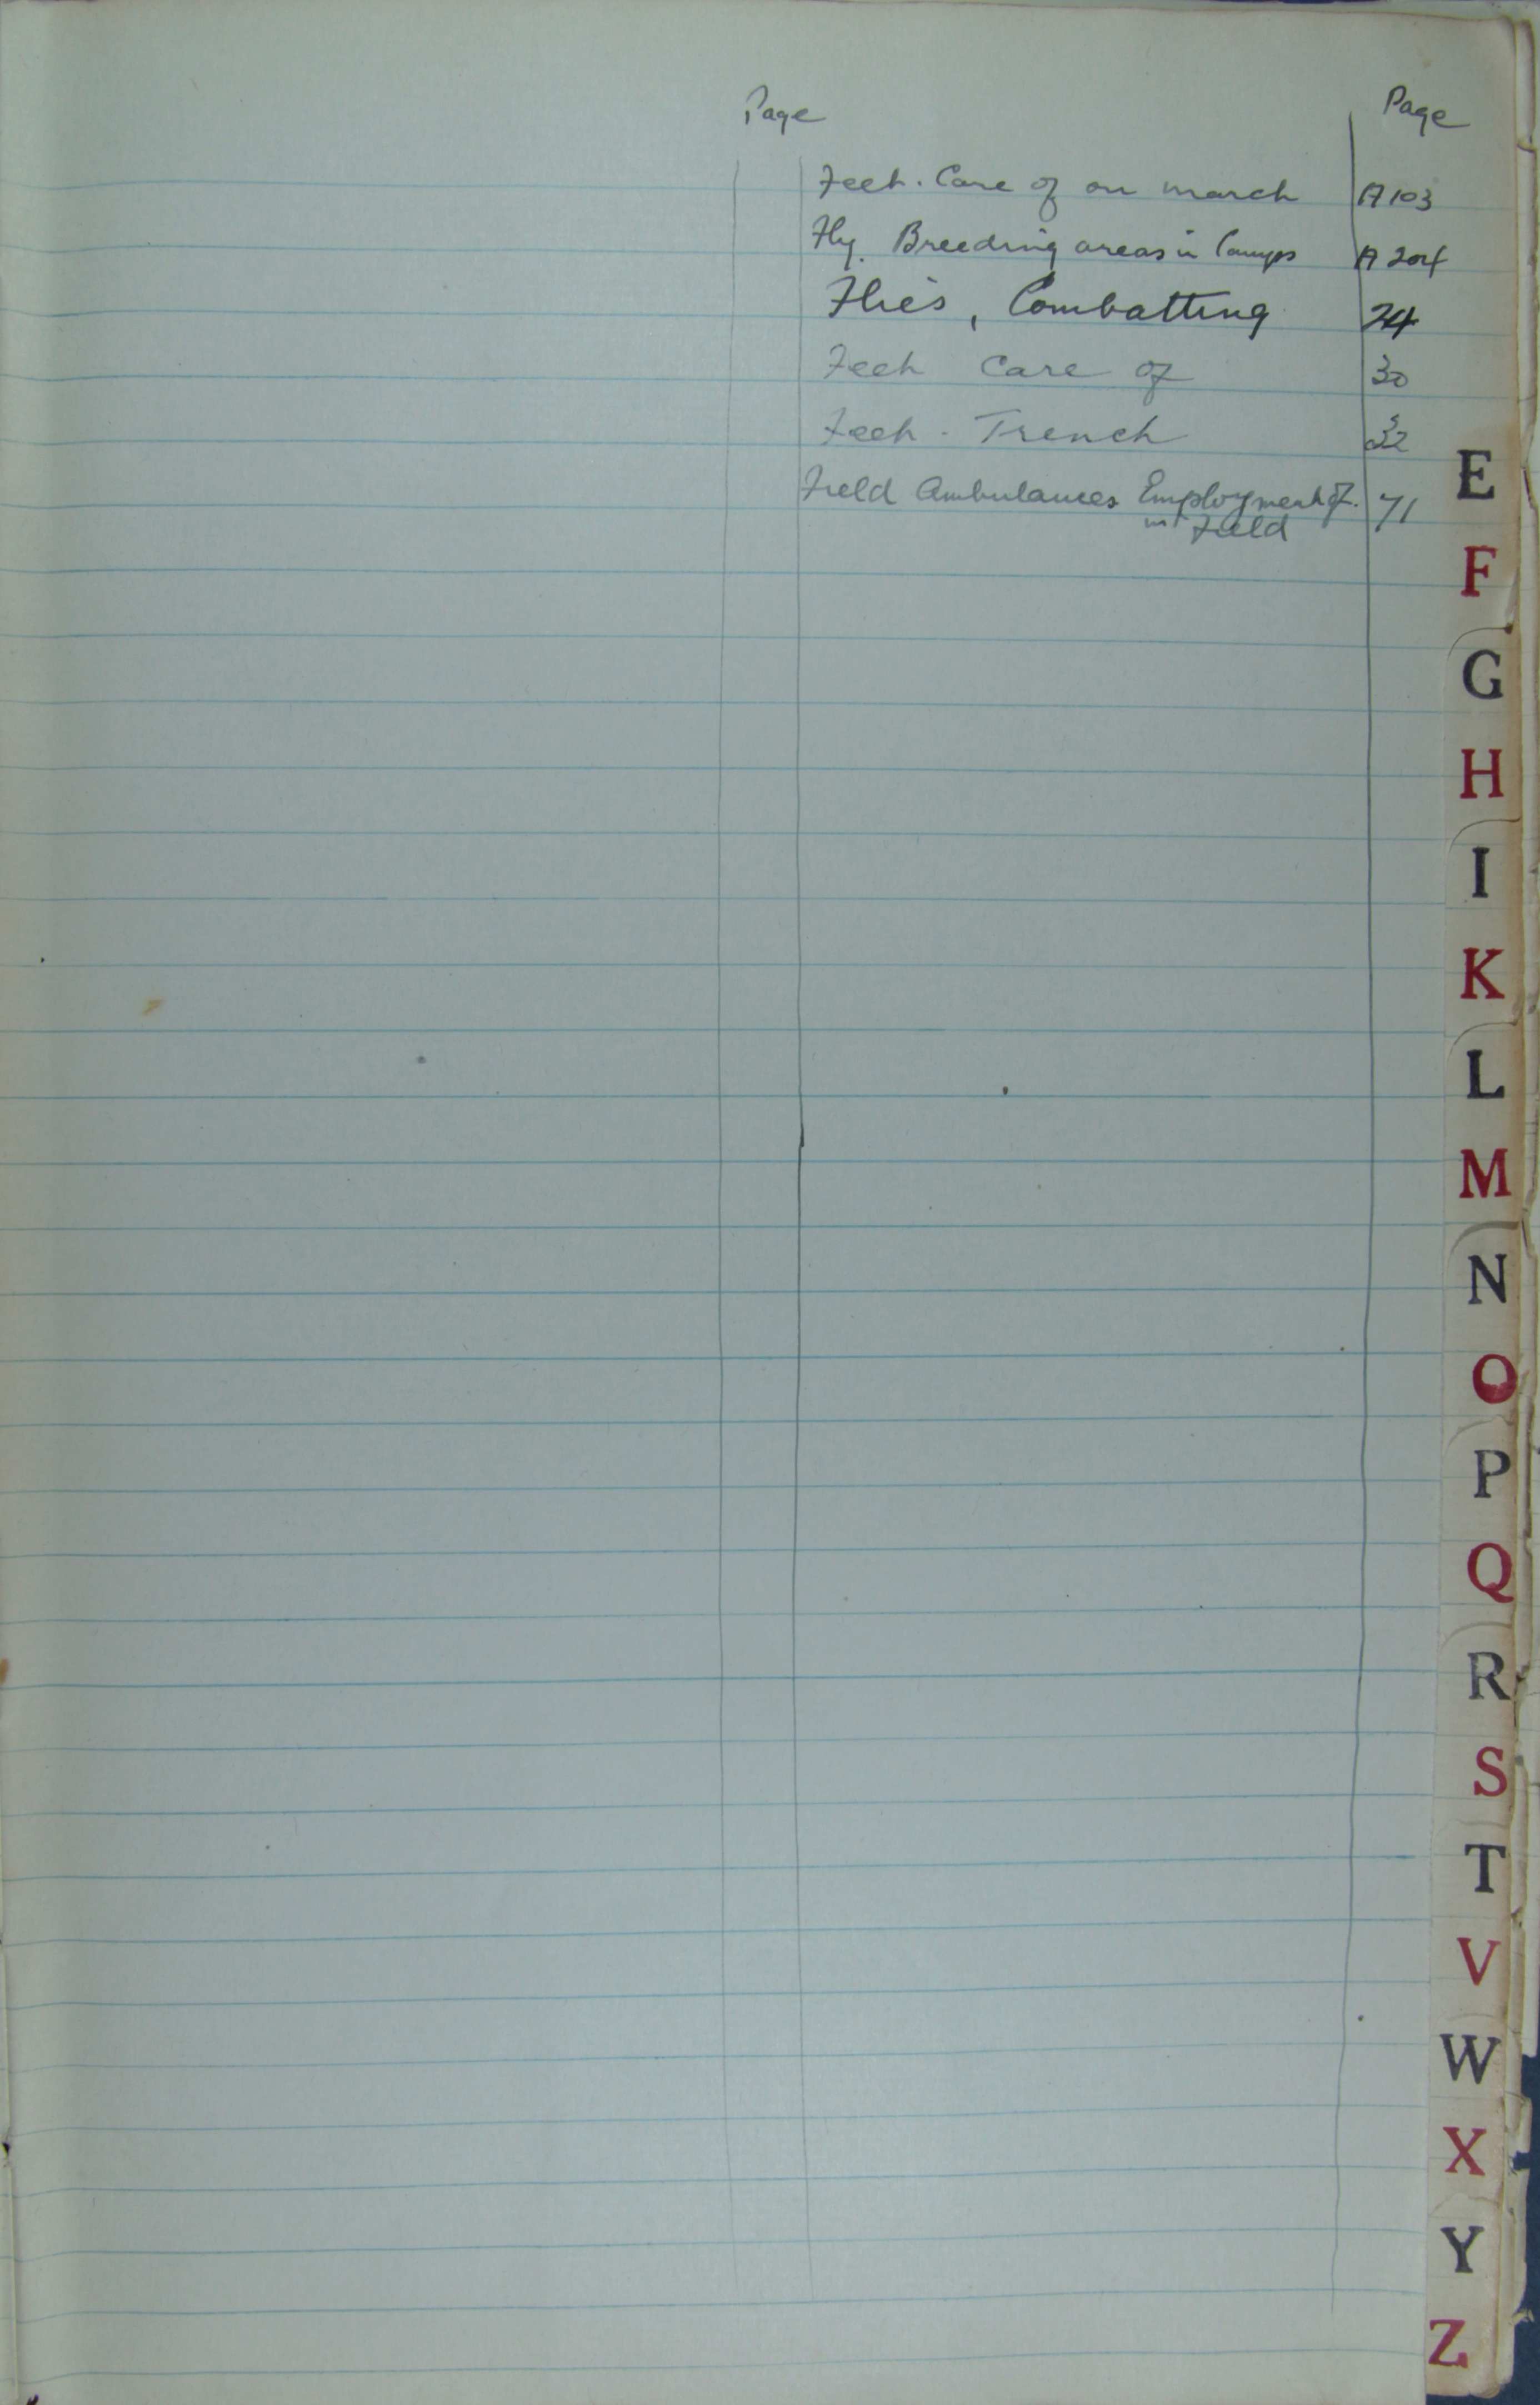 Page Page
Feet. Care of on march A 103
Fly. Breeding areas in Camps A 204
Flies, Combatting 24
Feet Care of 30
Feet - Trench 32
Field Ambulances Employment of 71
in Field
E
F
G
H
I
K
L
M
N
O
P
Q
R
S
T
V
W
X
Y
Z